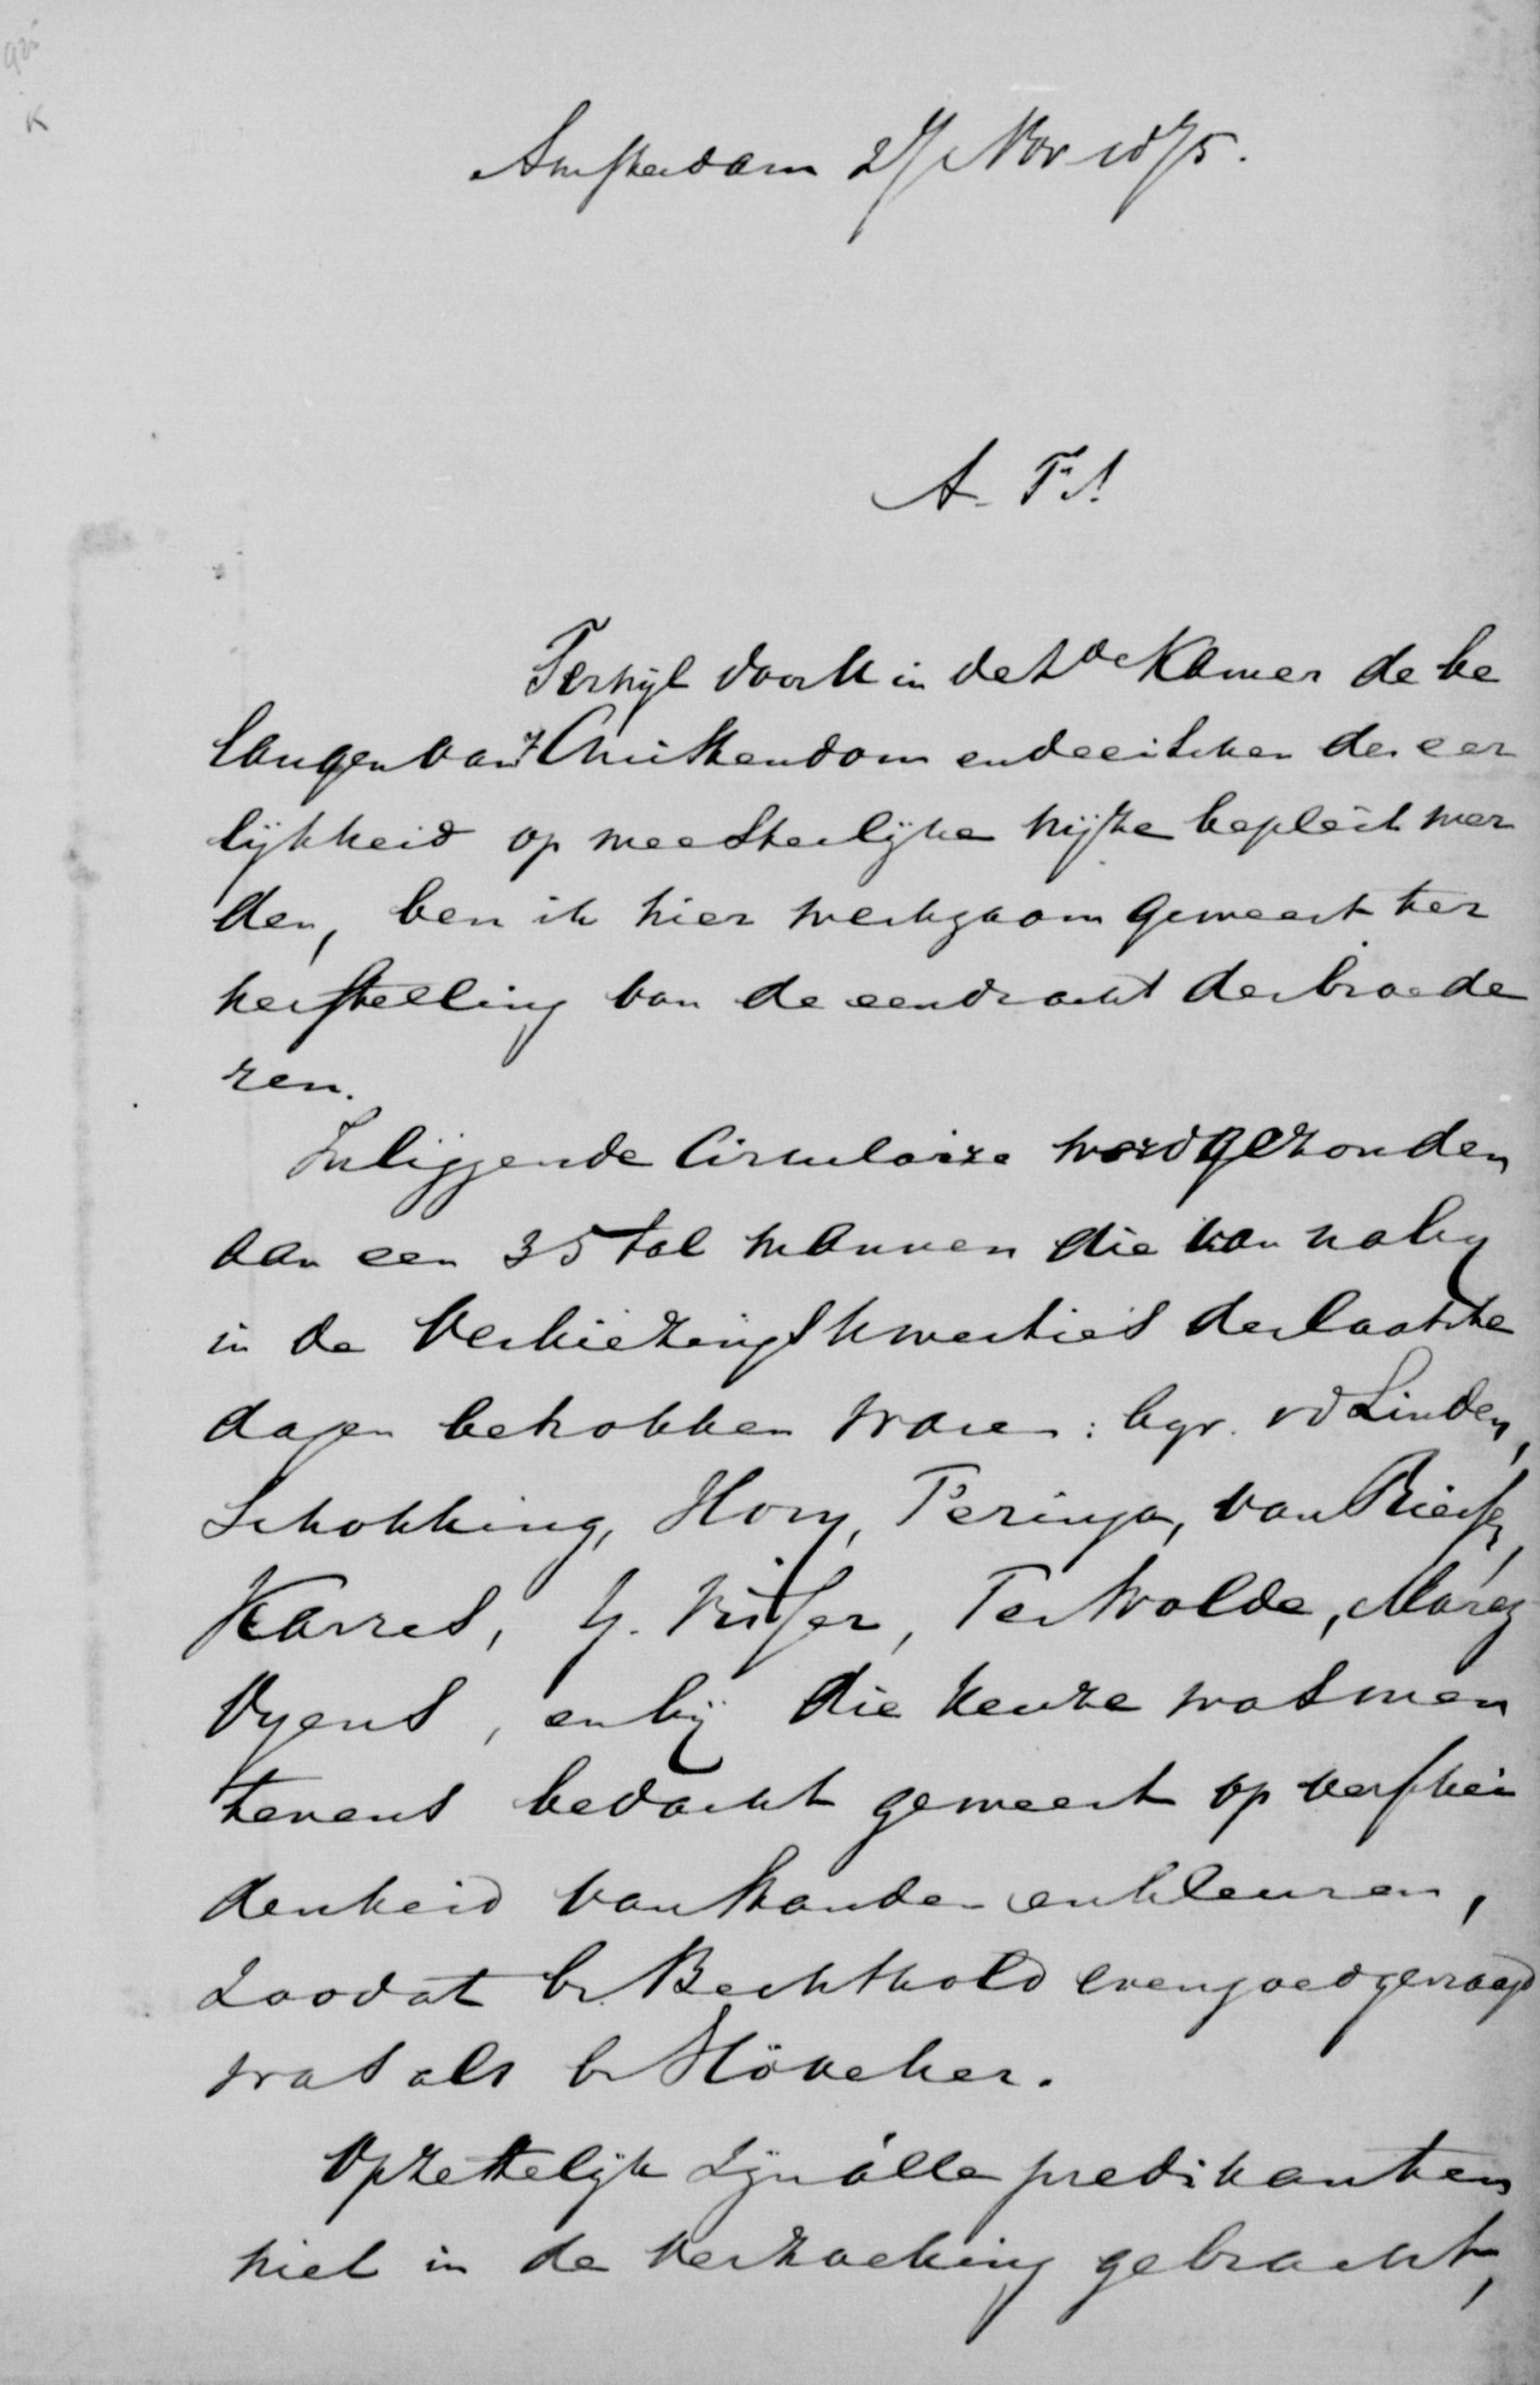 Amsterdam 27 Nov 1875.
A. F.!
Terwijl door U in de 2de Kamer de be
langen van 't Christendom en de eischen der eer
lijkheid op meesterlijke wijze bepleit wer
den, ben ik hier werkzaam geweest ter
herstelling van de eendracht der broede
ren.
Inliggende circulaire werd gezonden
aan een 35 tal mannen die van nabij
in de verkiezingskwesties der laatste
dagen betrokken waren: bijv. vd Linden,
Schokking, Hovy, Feringa, van
Karres, Y. Visser, Ter Wolde, Marez
Oyens, en bij die keuze was men
tevens bedacht geweest op verschei
denheid van standen en kleuren,
zoodat br. Bechthold evengoed gevraagd
was als br Höveker.
Opzettelijk zijn alle predikanten
niet in de verzoeking gebracht,